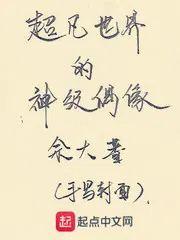 超凡世界
的
神级偶像
佘大寶
(手写封面)
起
起点中文网